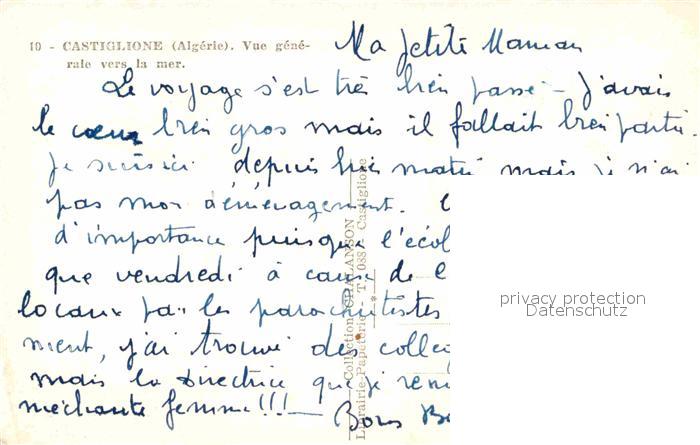 10 - CASTIGLIONE (Algérie). Vue géné-
rale vers la mer.
Ma petite Maman
Le voyage s'est très bien passé - J'avais
le cœur bien gros mais il fallait bien partir.
Je suis ici depuis hier matin mais je n'ai
pas mon déménagement.
d'importance puisque l'écol
que vendredi à cause de l
locaux par les parachutistes
ment, j'ai trouvé des colleg
mais la Directrice que je rem
méchante femme !!! — Bons B
Collection CHALANSON
Librairie-Papeterie - T. 088 - Castiglione
privacy protection
Datenschutz